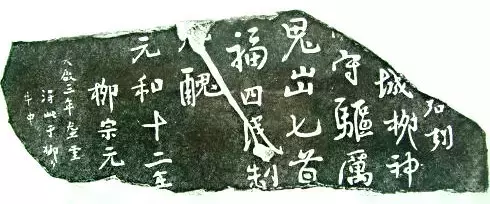 刻
城柳神
守驅厲
鬼出匕首
福四民制
醜
元和十二年
柳宗元
天啟三年龔重
得此于柳
井中